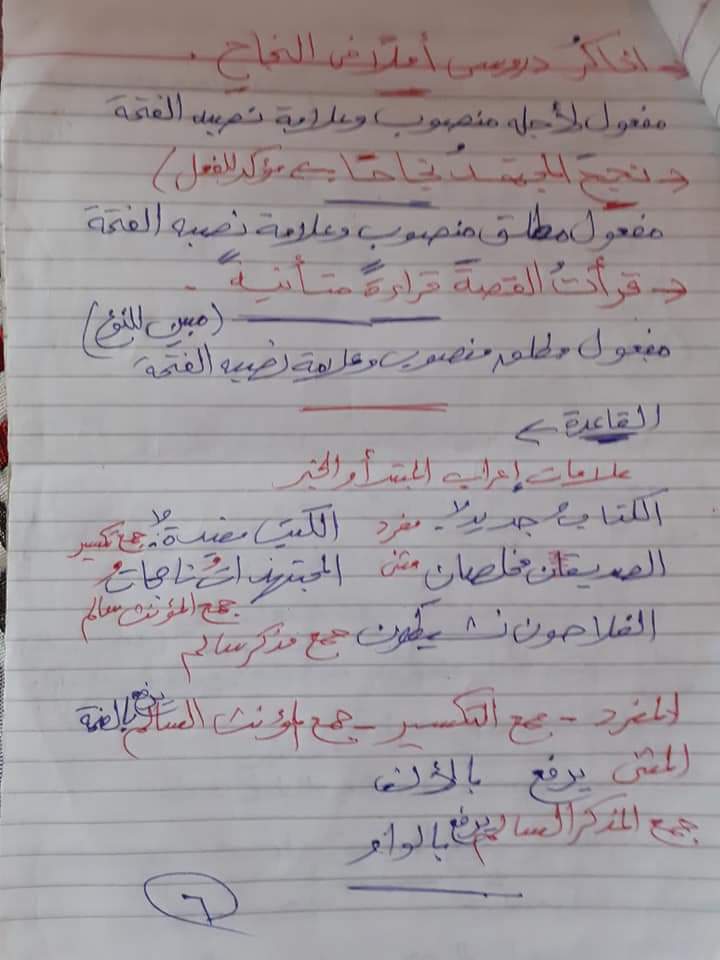 → اذاكر دروسى أملاً فى النجاح .
مفعول لأجله منصوب وعلامة نصبه الفتحة
→ نجح المجتهدُ نجاحًا ← مؤكد للفعل)
مفعول مطلق منصوب وعلامة نصبه الفتحة
→ قرأتُ القصةَ قراءةً متأنيةً .
(مبين للنوع)
مفعول مطلق منصوب وعلامة نصبه الفتحة
القاعدة ←
علامات إعراب المبتدأ والخبر
الكتابُ جديدٌ . مفرد الكتبُ مفيدةٌ . جمع تكسير
الصديقان مخلصان مثنى المجتهداتُ ناجحاتٌ
جمع المؤنث سالم
الفلاحون نشيطون جمع مذكر سالم
المفرد - جمع التكسير - جمع المؤنث السالم يرفع بالضمة
المثنى يرفع بالألف
جمع المذكر السالم يرفع بالواو
٦